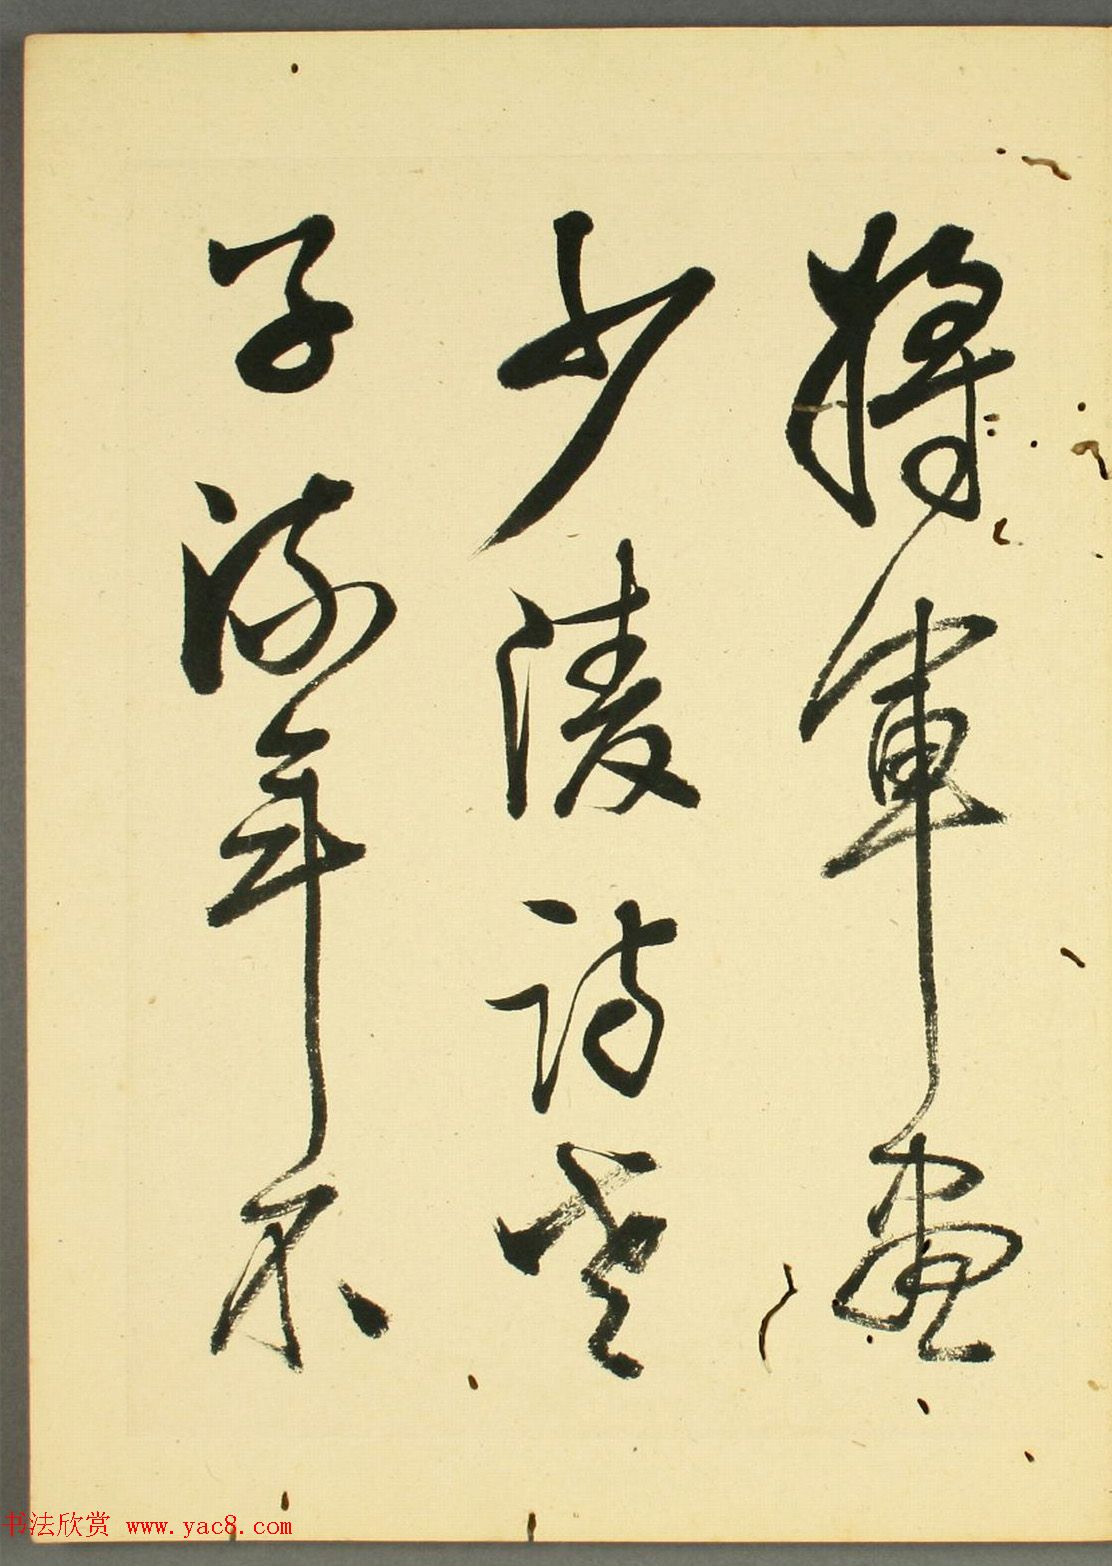 將軍畫
少陵詩老
子流年不
书法欣赏 www.yac8.com